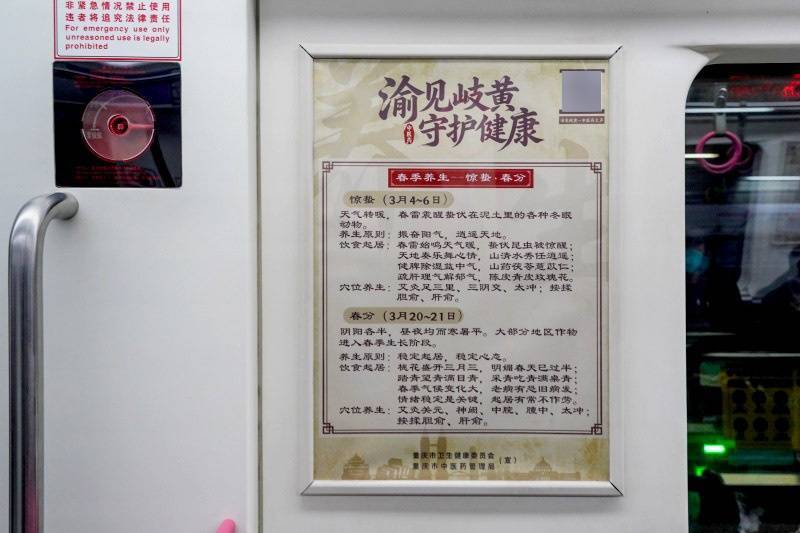 非紧急情况禁止使用
违者将追究法律责任
For emergency use only
unreasoned use is legally
prohibited
渝见岐黄
中医药
守护健康
春季养生--惊蛰·春分
惊蛰（3月4~6日）
天气转暖，春雷震醒蛰伏在泥土里的各种冬眠
动物。
养生原则：振奋阳气，逍遥天地。
饮食起居：春雷始鸣天气暖，蛰伏昆虫被惊醒；
天地奏乐舞心情，山清水秀任逍遥；
健脾除湿益中气，山药茯苓薏苡仁；
疏肝理气解郁气，陈皮青皮玫瑰花。
穴位养生：艾灸足三里、三阴交、太冲；按揉
胆俞、肝俞。
春分（3月20~21日）
阴阳各半，昼夜均而寒暑平。大部分地区作物
进入春季生长阶段。
养生原则：稳定起居，稳定心态。
饮食起居：桃花盛开三月三，明媚春天已过半；
踏青望青满目青，采青吃青满桌青；
春季气候变化大，老病有恐旧病发；
情绪稳定是关键，起居有常不作劳。
穴位养生：艾灸关元、神阙、中脘、膻中、太冲；
按揉胆俞、肝俞。
重庆市卫生健康委员会
重庆市中医药管理局
（宣）